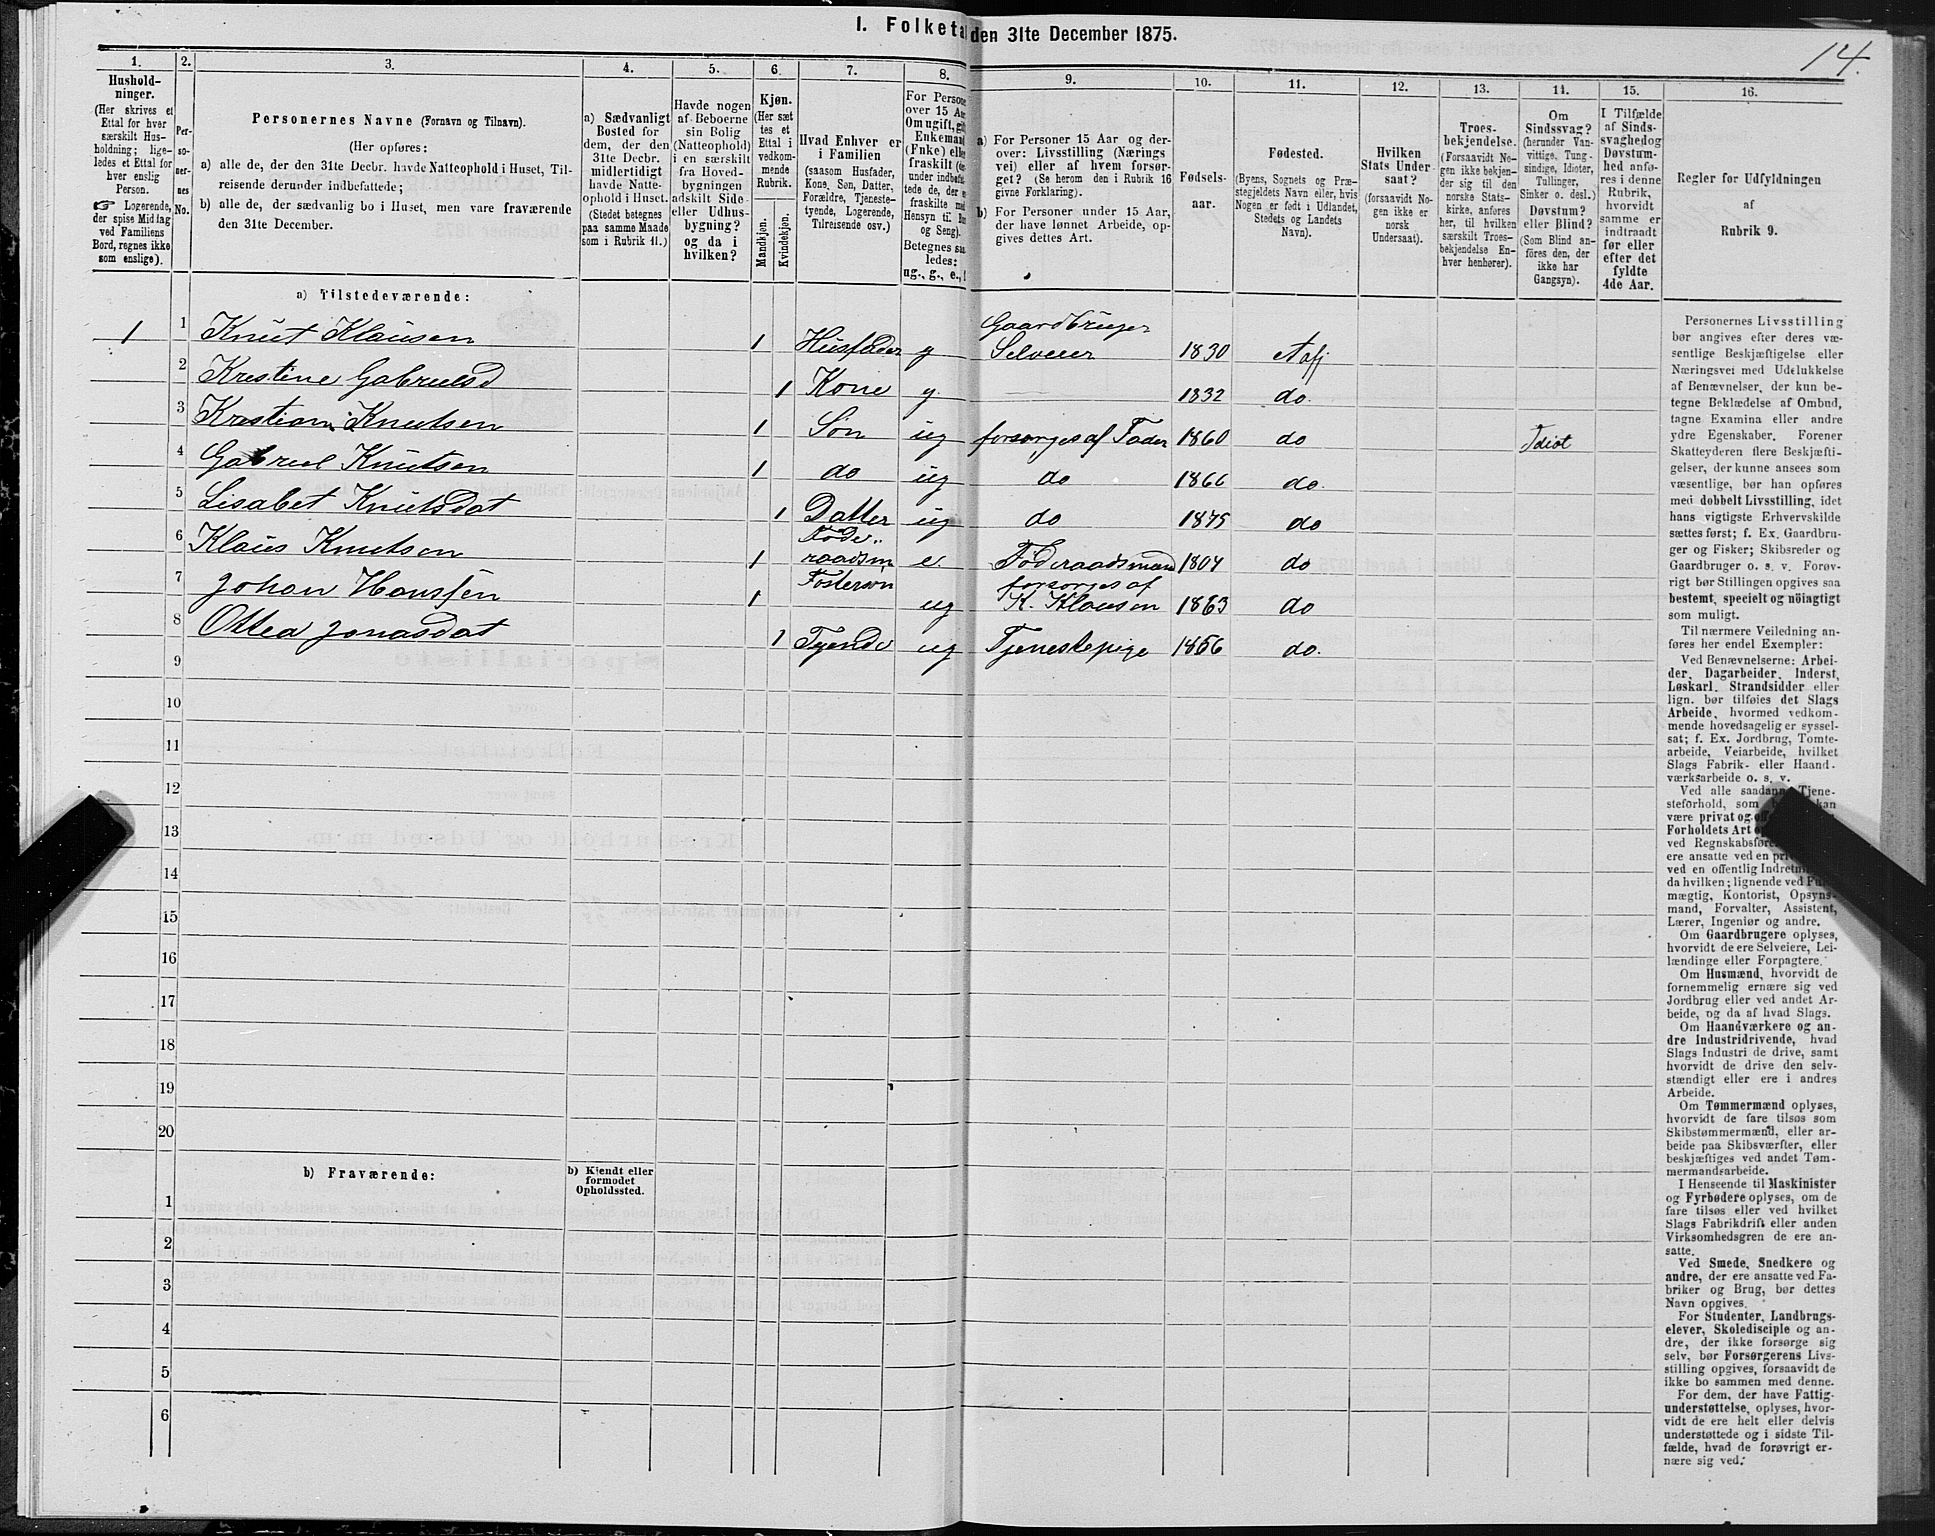 I. Folketal den 31te December 1875.
14.
1.
Hushold-
ninger.
(Her skrives et
Ettal for hver
særskilt Hus-
holdning; lige-
ledes et Ettal for
hver enslig
Person.
☞ Logerende,
der spise Middag
ved Familiens
Bord, regnes ikke
som enslige).
2.
Per-
so-
ner-
nes
No.
3.
Personernes Navne (Fornavn og Tilnavn).
(Her opføres:
a) alle de, der den 31te Decbr. havde Natteophold i Huset, Til-
reisende derunder indbefattede;
b) alle de, der sædvanlig bo i Huset, men vare fraværende
den 31te December.
4.
a) Sædvanligt
Bosted for
dem, der den
31te Decbr.
midlertidigt
havde Natte-
ophold i Huset.
(Stedet betegnes
paa samme Maade
som i Rubrik 11.)
5.
Havde nogen
af Beboerne
sin Bolig
(Natteophold)
i en særskilt
fra Hoved-
bygningen
adskilt Side-
eller Udhus-
bygning?
og da i
hvilken?
6.
Kjøn.
(Her sæt
tes et
Ettal i
vedkom-
mende
Rubrik.
Mandkjøn.
Kvindekjøn.
7.
Hvad Enhver er
i Familien
(saasom Husfader,
Kone, Søn, Datter,
Forældre, Tjeneste-
tyende, Logerende,
Tilreisende osv.)
8.
For Persone
over 15 Aar
Om ugift, gift
Enkemand
(Enke) eller
fraskilt
under indbefat
tede de, der e
fraskilte med
Hensyn til Bor
og Seng).
Betegnes saa
ledes:
ug., g., e.,
9.
a) For Personer 15 Aar og der-
over: Livsstilling (Nærings
vei) eller af hvem forsør-
get? (Se herom den i Rubrik 16
givne Forklaring).
b) For Personer under 15 Aar,
der have lønnet Arbeide, op-
gives dettes Art.
10.
Fødsels-
aar.
11.
Fødested.
(Byens, Sognets og Præ-
stegjeldets Navn eller, hvis
Nogen er født i Udlandet,
Stedets og Landets
Navn).
12.
Hvilken
Stats Under
saat?
(forsaavidt No-
gen ikke er
norsk
Undersaat).
13.
Troes-
bekjendelse.
(Forsaavidt No-
gen ikke bekjen-
der sig til den
norske Stats-
kirke, anføres
her, til hvilken
særskilt Troes-
bekjendelse En-
hver henhører).
14.
Om
Sindssvag?
(herunder Van-
vittige, Tung-
sindige, Idioter,
Tullinger,
Sinker o. desl.)
Døvstum?
eller Blind?
(Som Blind an-
föres den, der
ikke har
Gangsyn).
15.
I Tilfælde
af Sinds-
svaghed og
Døvstum-
hed anfø-
res i denne
Rubrik,
hvorvidt
samme er
indtraadt
før eller
efter det
fyldte
4de Aar.
16.
Regler for Udfyldningen
af
Rubrik 9.
a) Tilstedeværende:
1 1 Knut Klausen 1 Husfader g Gaardbruger Selveier 1830 Aafj
2 Krestine Gabrielsd 1 Kone g. 1832 do.
3 Kristian Knutsen 1 Søn ug forsorges af Fader 1860 do Idiot
4 Gabriel Knutsen 1 do ug do 1866 do.
5 Lisabet Knutsdat 1 Datter ug do 1875 do
6 Klaus Knutsen 1 Föde-raadsm e. Föderaadsmand 1804 do
7 Johan Hanssen 1 Fosterson ug forsorges af K. Klausen 1863 do
8 Ottea Jonasdat 1 Tyende ug Tjenestepige 1856 do.
9
10
11
12
13
14
15
16
17
18
19
20
b) Fraværende:
b) Kjendt eller
formodet
Opholdssted.
1
2
3
4
5
6
Personernes Livsstilling
bør angives efter deres væ-
sentlige Beskjæftigelse eller
Næringsvei med Udelukkelse
af Benævnelser, der kun be-
tegne Beklædelse af Ombud,
tagne Examina eller andre
ydre Egenskaber. Forener
Skatteyderen flere Beskjæfti-
gelser, der kunne ansees som
væsentlige, bør han opføres
med dobbelt Livsstilling, idet
hans vigtigste Erhvervskilde
sættes først; f. Ex. Gaardbru-
ger og Fisker; Skibsreder og
Gaardbruger o. s. v. Forøv-
rigt bør Stillingen opgives saa
bestemt, specielt og nöiagtigt
som muligt.
Til nærmere Veiledning an-
føres her endel Exempler:
Ved Benævnelserne: Arbei-
der, Dagarbeider, Inderst,
Løskarl, Strandsidder eller
lign. bør tilføies det Slags
Arbeide, hvormed vedkom-
mende hovedsagelig er syssel-
sat; f. Ex. Jordbrug, Tomte-
arbeide, Veiarbeide, hvilket
Slags Fabrik- eller Haand-
værksarbeide o. s. v.
Ved alle saadanne Tjene-
steforhold, som kan
være privat og
Forholdets Art
ved Regnskabsføre
ere ansatte ved en
ved en offentlig Indretn
da hvilken; lignende ved Ful
mægtig, Kontorist, Opsyns-
mand, Forvalter, Assistent,
Lærer, Ingeniør og andre.
Om Gaardbrugere oplyses,
hvorvidt de ere Selveiere, Lei-
lændinge eller Forpagtere.
Om Husmænd, hvorvidt de
fornemmelig ernære sig ved
Jordbrug eller ved andet Ar-
beide, og da af hvad Slags.
Om Haandværkere og an-
dre Industridrivende, hvad
Slags Industri de drive, samt
hvorvidt de drive den selv-
stændigt eller ere i andres
Arbeide.
Om Tømmermænd oplyses,
hvorvidt de fare tilsøs som
Skibstømmermænd, eller ar-
beide paa Skibsværfter, eller
beskjæftiges ved andet Tøm-
mermandsarbeide.
I Henseende til Maskinister
og Fyrbødere oplyses, om de
fare tilsøs eller ved hvilket
Slags Fabrikdrift eller anden
Virksomhedsgren de ere an-
satte.
Ved Smede, Snedkere og
andre, der ere ansatte ved Fa-
briker og Brug, bør dettes
Navn opgives.
For Studenter, Landbrugs-
elever, Skoledisciple og an-
dre, der ikke forsørge sig
selv, bør Forsørgerens Livs-
stilling opgives, forsaavidt de
ikke bo sammen med denne.
For dem, der have Fattig-
understøttelse, oplyses, hvor-
vidt de ere helt eller delvis
understøttede og i sidste Til-
fælde, hvad de forøvrigt er-
nære sig ved.